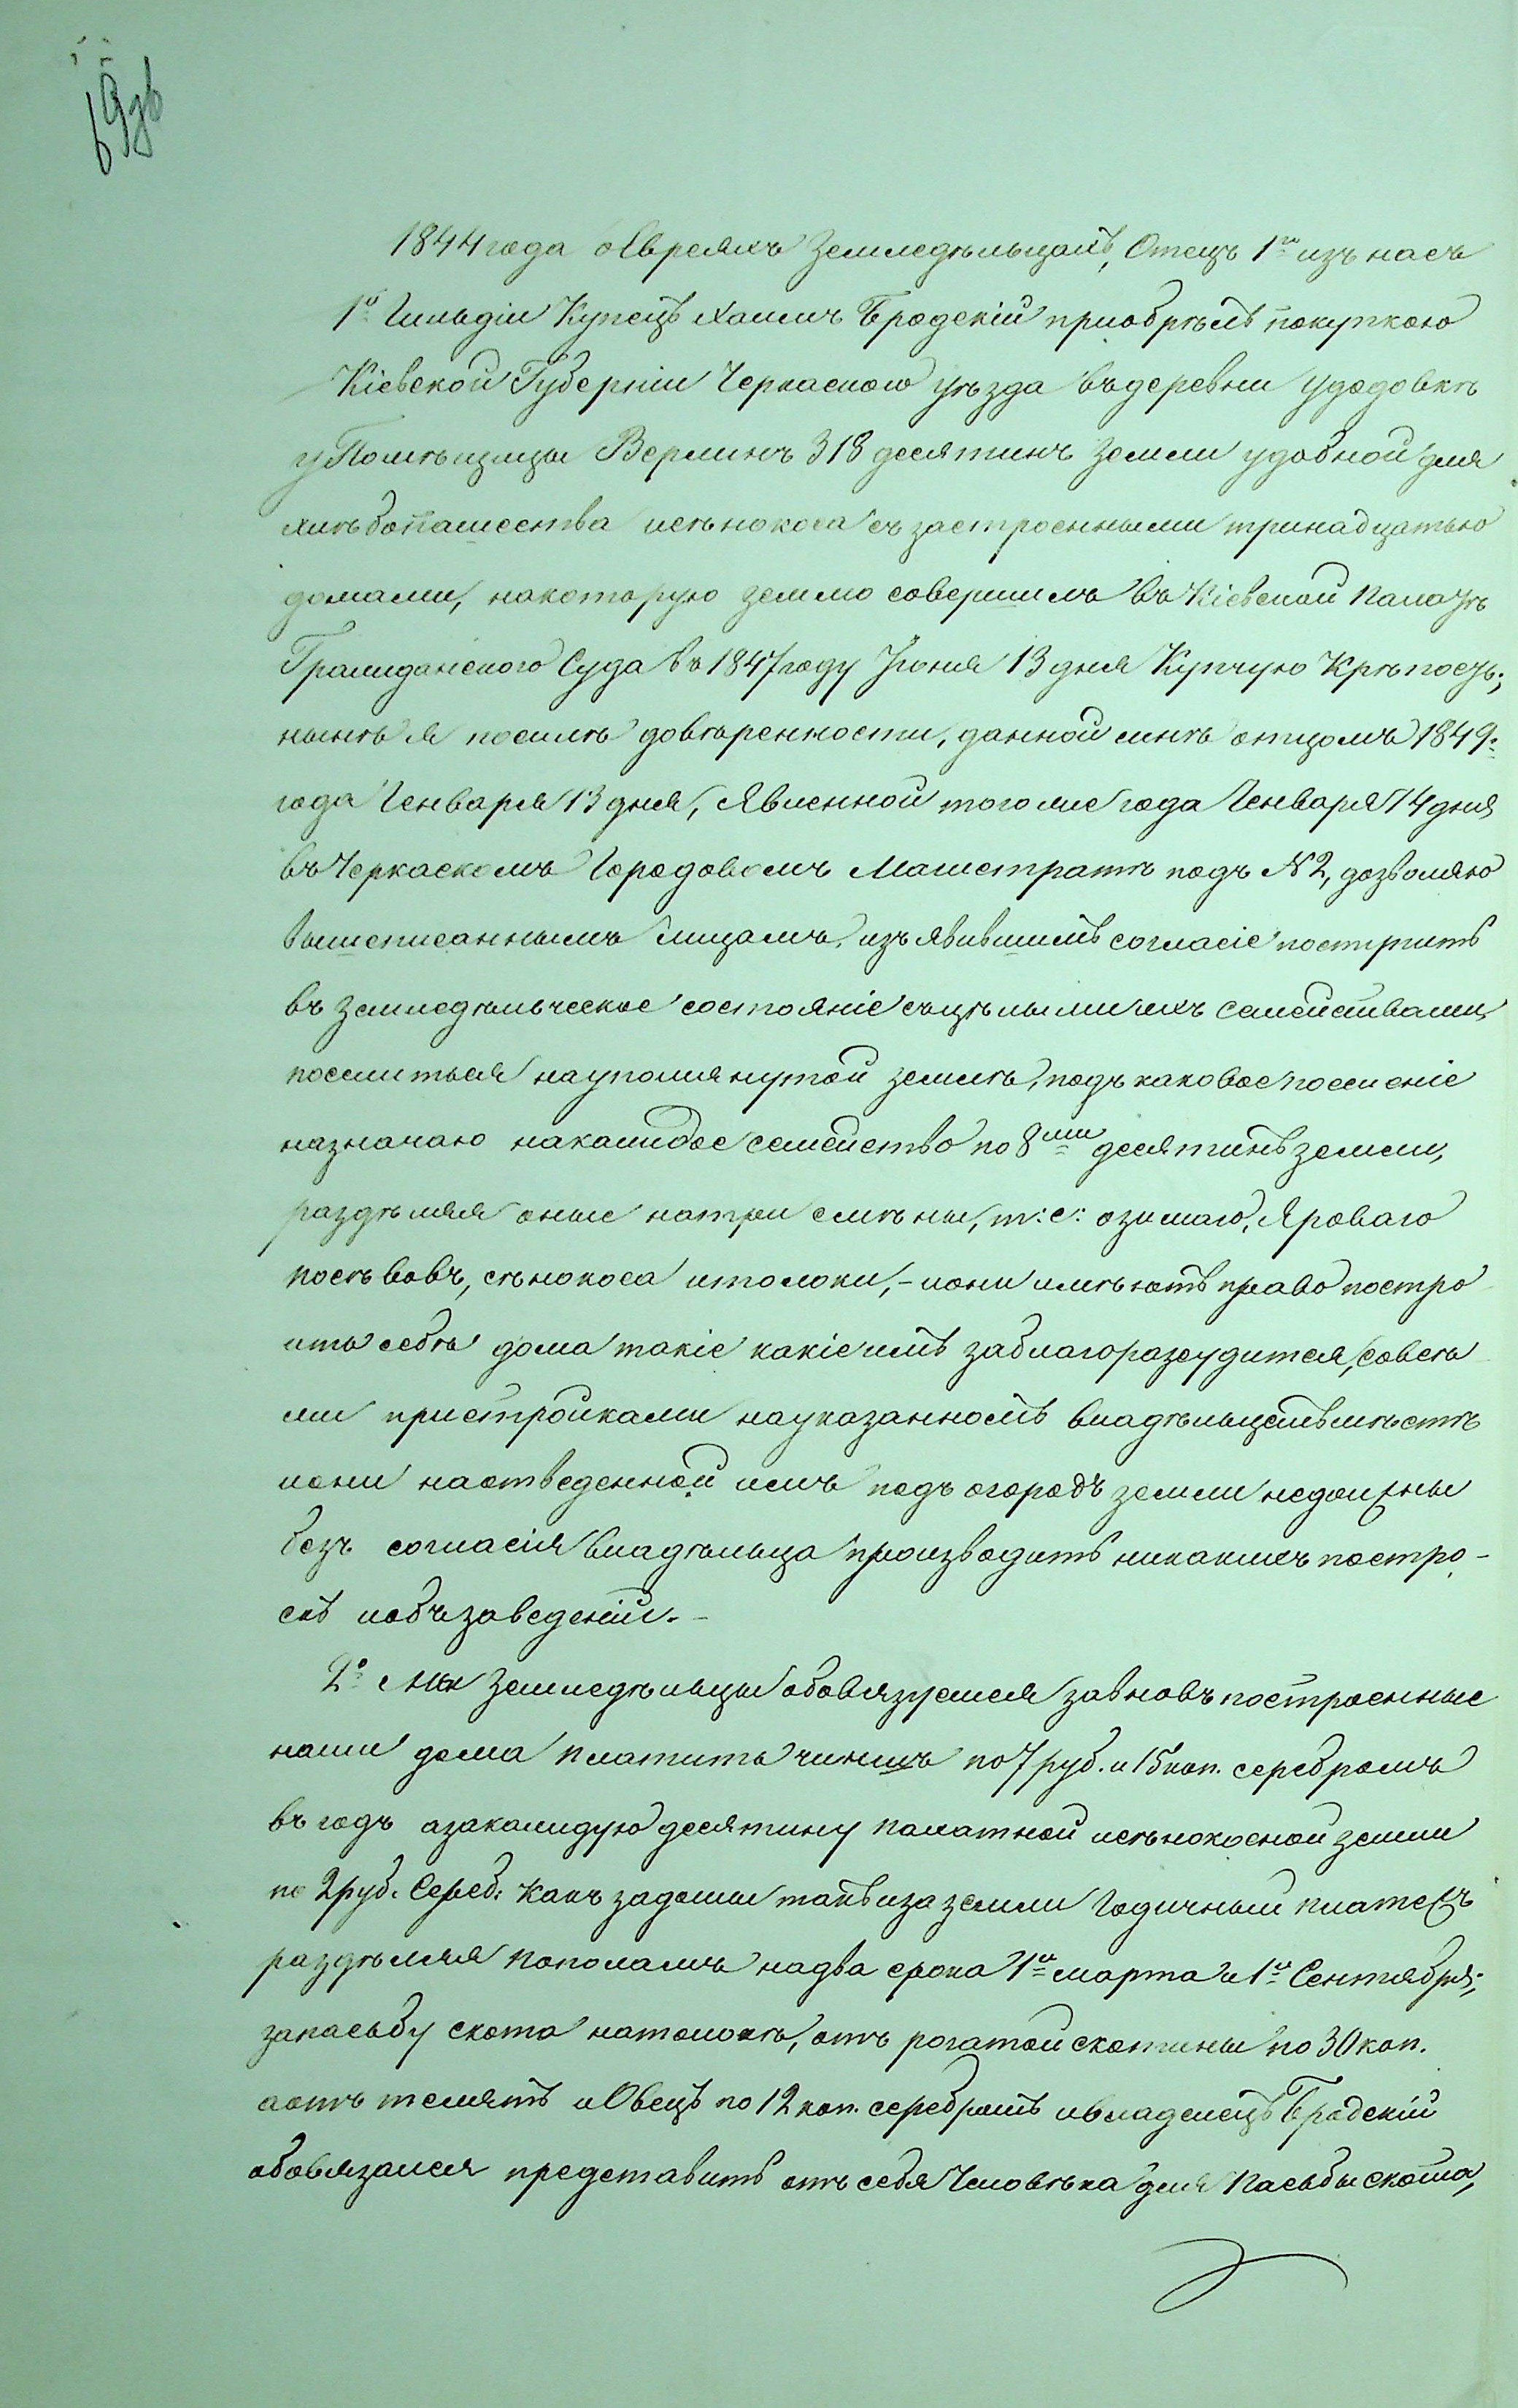 69 зв
1844 года о Евреяхъ Земледѣльцахъ, Отецъ 1го изъ насъ
1й Гильдіи Купецъ Хаимъ Бродскій приобрѣлъ покупкою
Кіевской Губерніи Черкаскаго уѣзда въ деревни Удодовкѣ
у Помѣщицы Вермикъ 318 десятинъ земли удобной для
хлѣбопашества и сѣнокоса съ застроенными тринадцатью
домами, на которую землю совершилъ въ Кіевской Палатѣ
Гражданскаго Суда въ 1847 году Іюня 13 дня Купчую Крѣпость;
нынѣ я по силѣ довѣренности, данной мнѣ отцомъ 1849:
года Генваря 13 дня, явленной того же года Генваря 14 дня
въ Черкаскомъ Городовомъ Магистратѣ подъ N 2, дозволяю
вышеписаннымъ лицамъ, изъявившимъ согласіе поступить
въ земледѣльческое состояніе съ цѣлыми ихъ семействами
поселиться на упомянутой землѣ, подъ каковое поселеніе
назначаю на каждое семейство по 8ми десятинъ земли,
раздѣляя оные на три смѣны, т: е: озимаго, яроваго
посѣвовъ, сѣнокоса и толоки, - и они имѣютъ право постро
ить себѣ дома такіе какіе имъ заблагоразсудится, со всѣ
ми пристройками на указанномъ владѣльцемъ мѣстѣ
и они на отведенной имъ подъ огородъ земли не должны
безъ согласія владѣльца производить никакихъ постро-
екъ и обзаведеній. -
2е Мы Земледѣльцы обовязуемся за вновь построенные
наши дома платить чиншъ по 7 руб. и 15 коп. серебромъ
въ годъ а за каждую десятину пахатной и сѣнокосной земли
по 2 руб. Сереб: какъ за домы такъ и за земли годичный платежъ
раздѣляя пополамъ на два срока 1е марта и 1е Сентября;
за пасьбу скота на толокѣ, отъ рогатой скотины по 30 коп.
а отъ телятъ и Овецъ по 12 коп. серебромъ и владелецъ Бродскій
обовязался представить отъ себя Человѣка для Пасьбы скота,